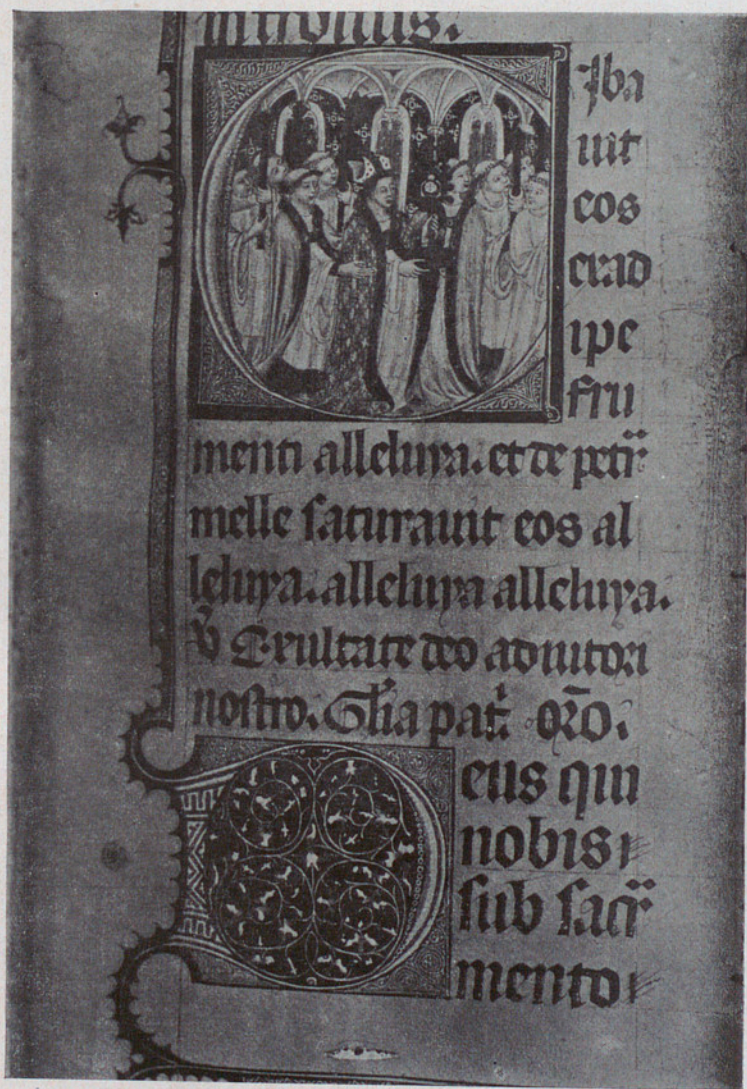 introitus.
Iba
uit
eos
exad
ipe
fru
menti alleluya. et de petᷓ
melle saturauit eos al
leluya. alleluya alleluya.
v̾ Exultate deo adiutori
nostro. Gl̃ia patͥ. or̃o.
eus qui
nobis
sub sacᷓ
mento